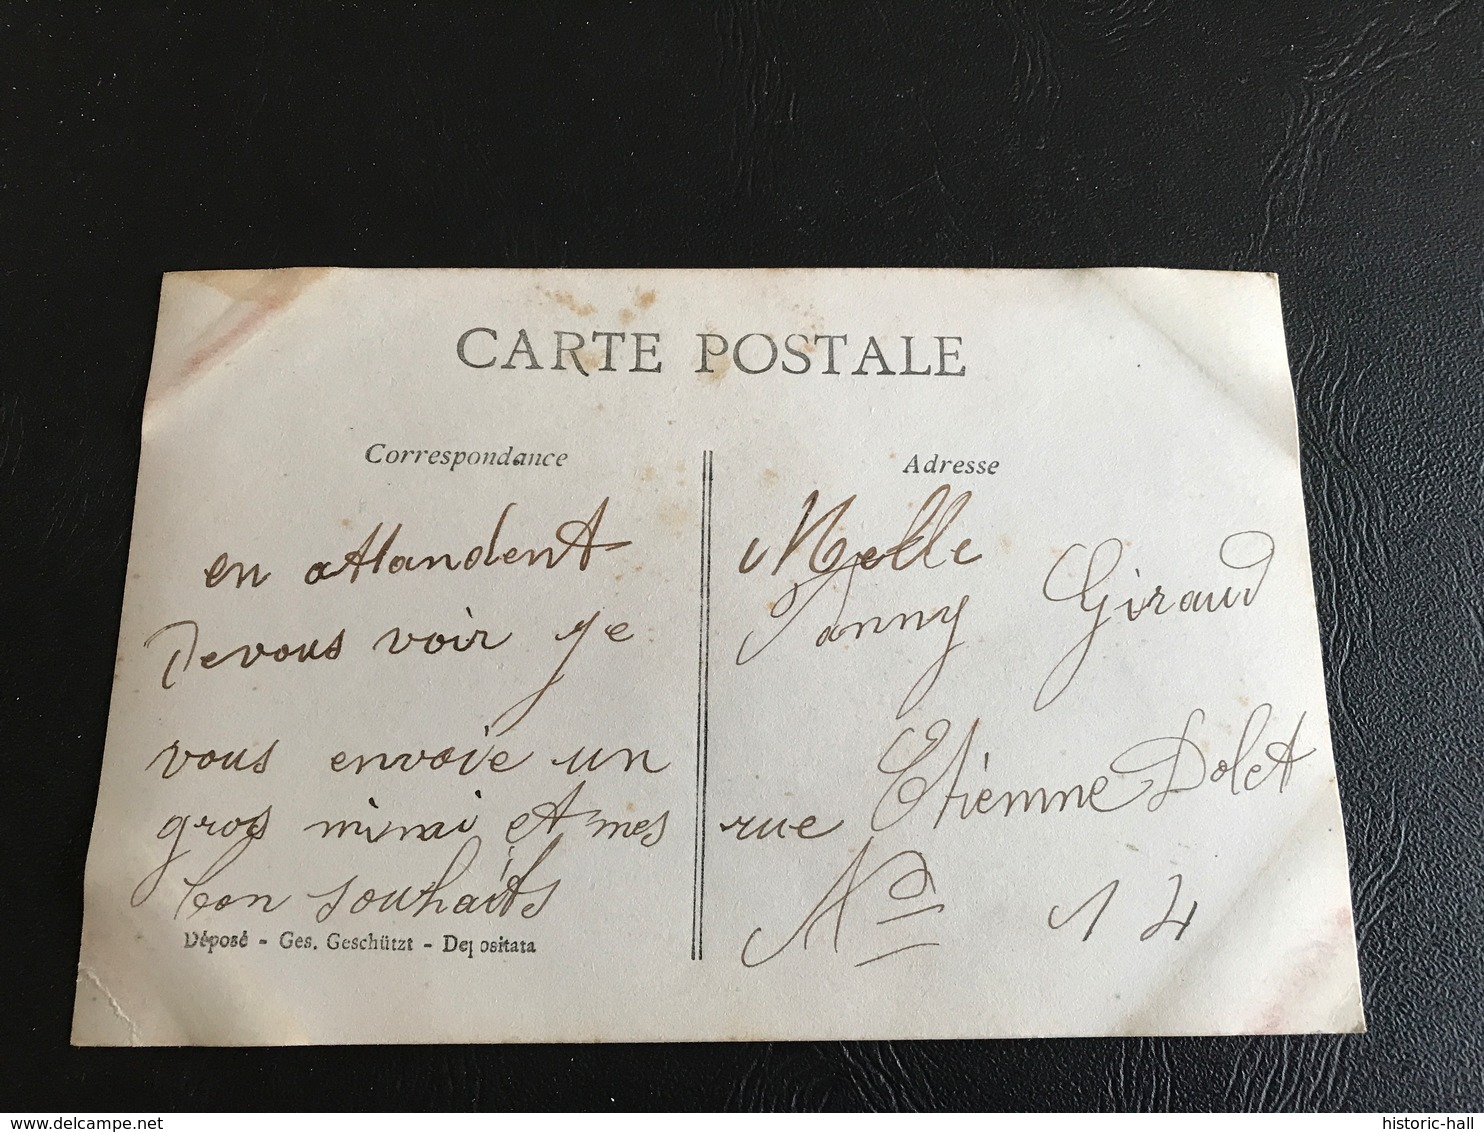 CARTE POSTALE
Correspondance
en attandent
Devous voir je
vous envoie un
gros mimi et mes
bon souhaits
Déposé - Ges. Geschützt - Depositata
Adresse
Melle
Fanny Giraud
rue Etienne Dolet
No 14
historic-hall